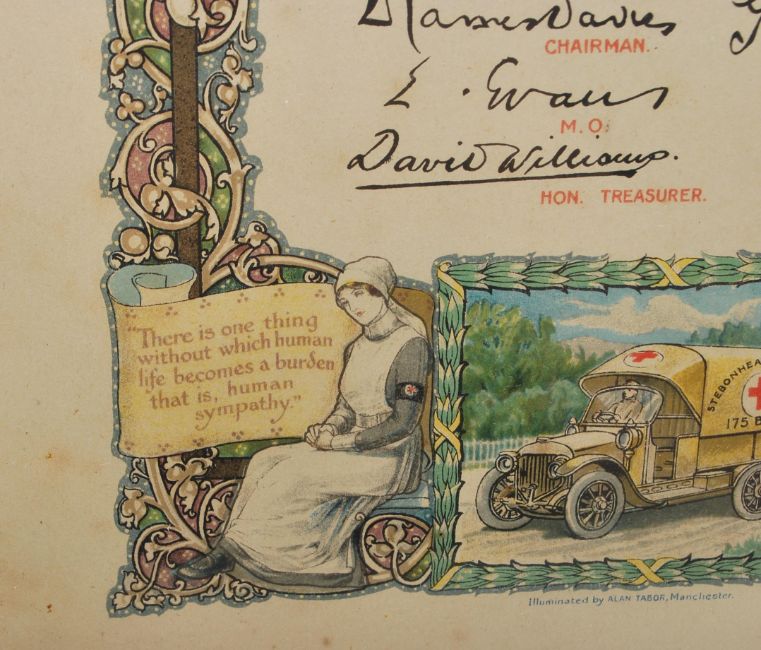 Davies
CHAIRMAN.
E. Evans
M.O.
David Williams.
HON. TREASURER.
"There is one thing
without which human
life becomes a burden
that is, human
sympathy."
STEBONHEA
175 B
Illuminated by ALAN TABOR, Manchester.